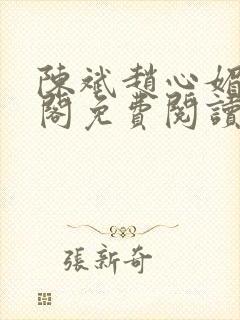 陳斌趙心媚
閣免費閱讀
張新奇